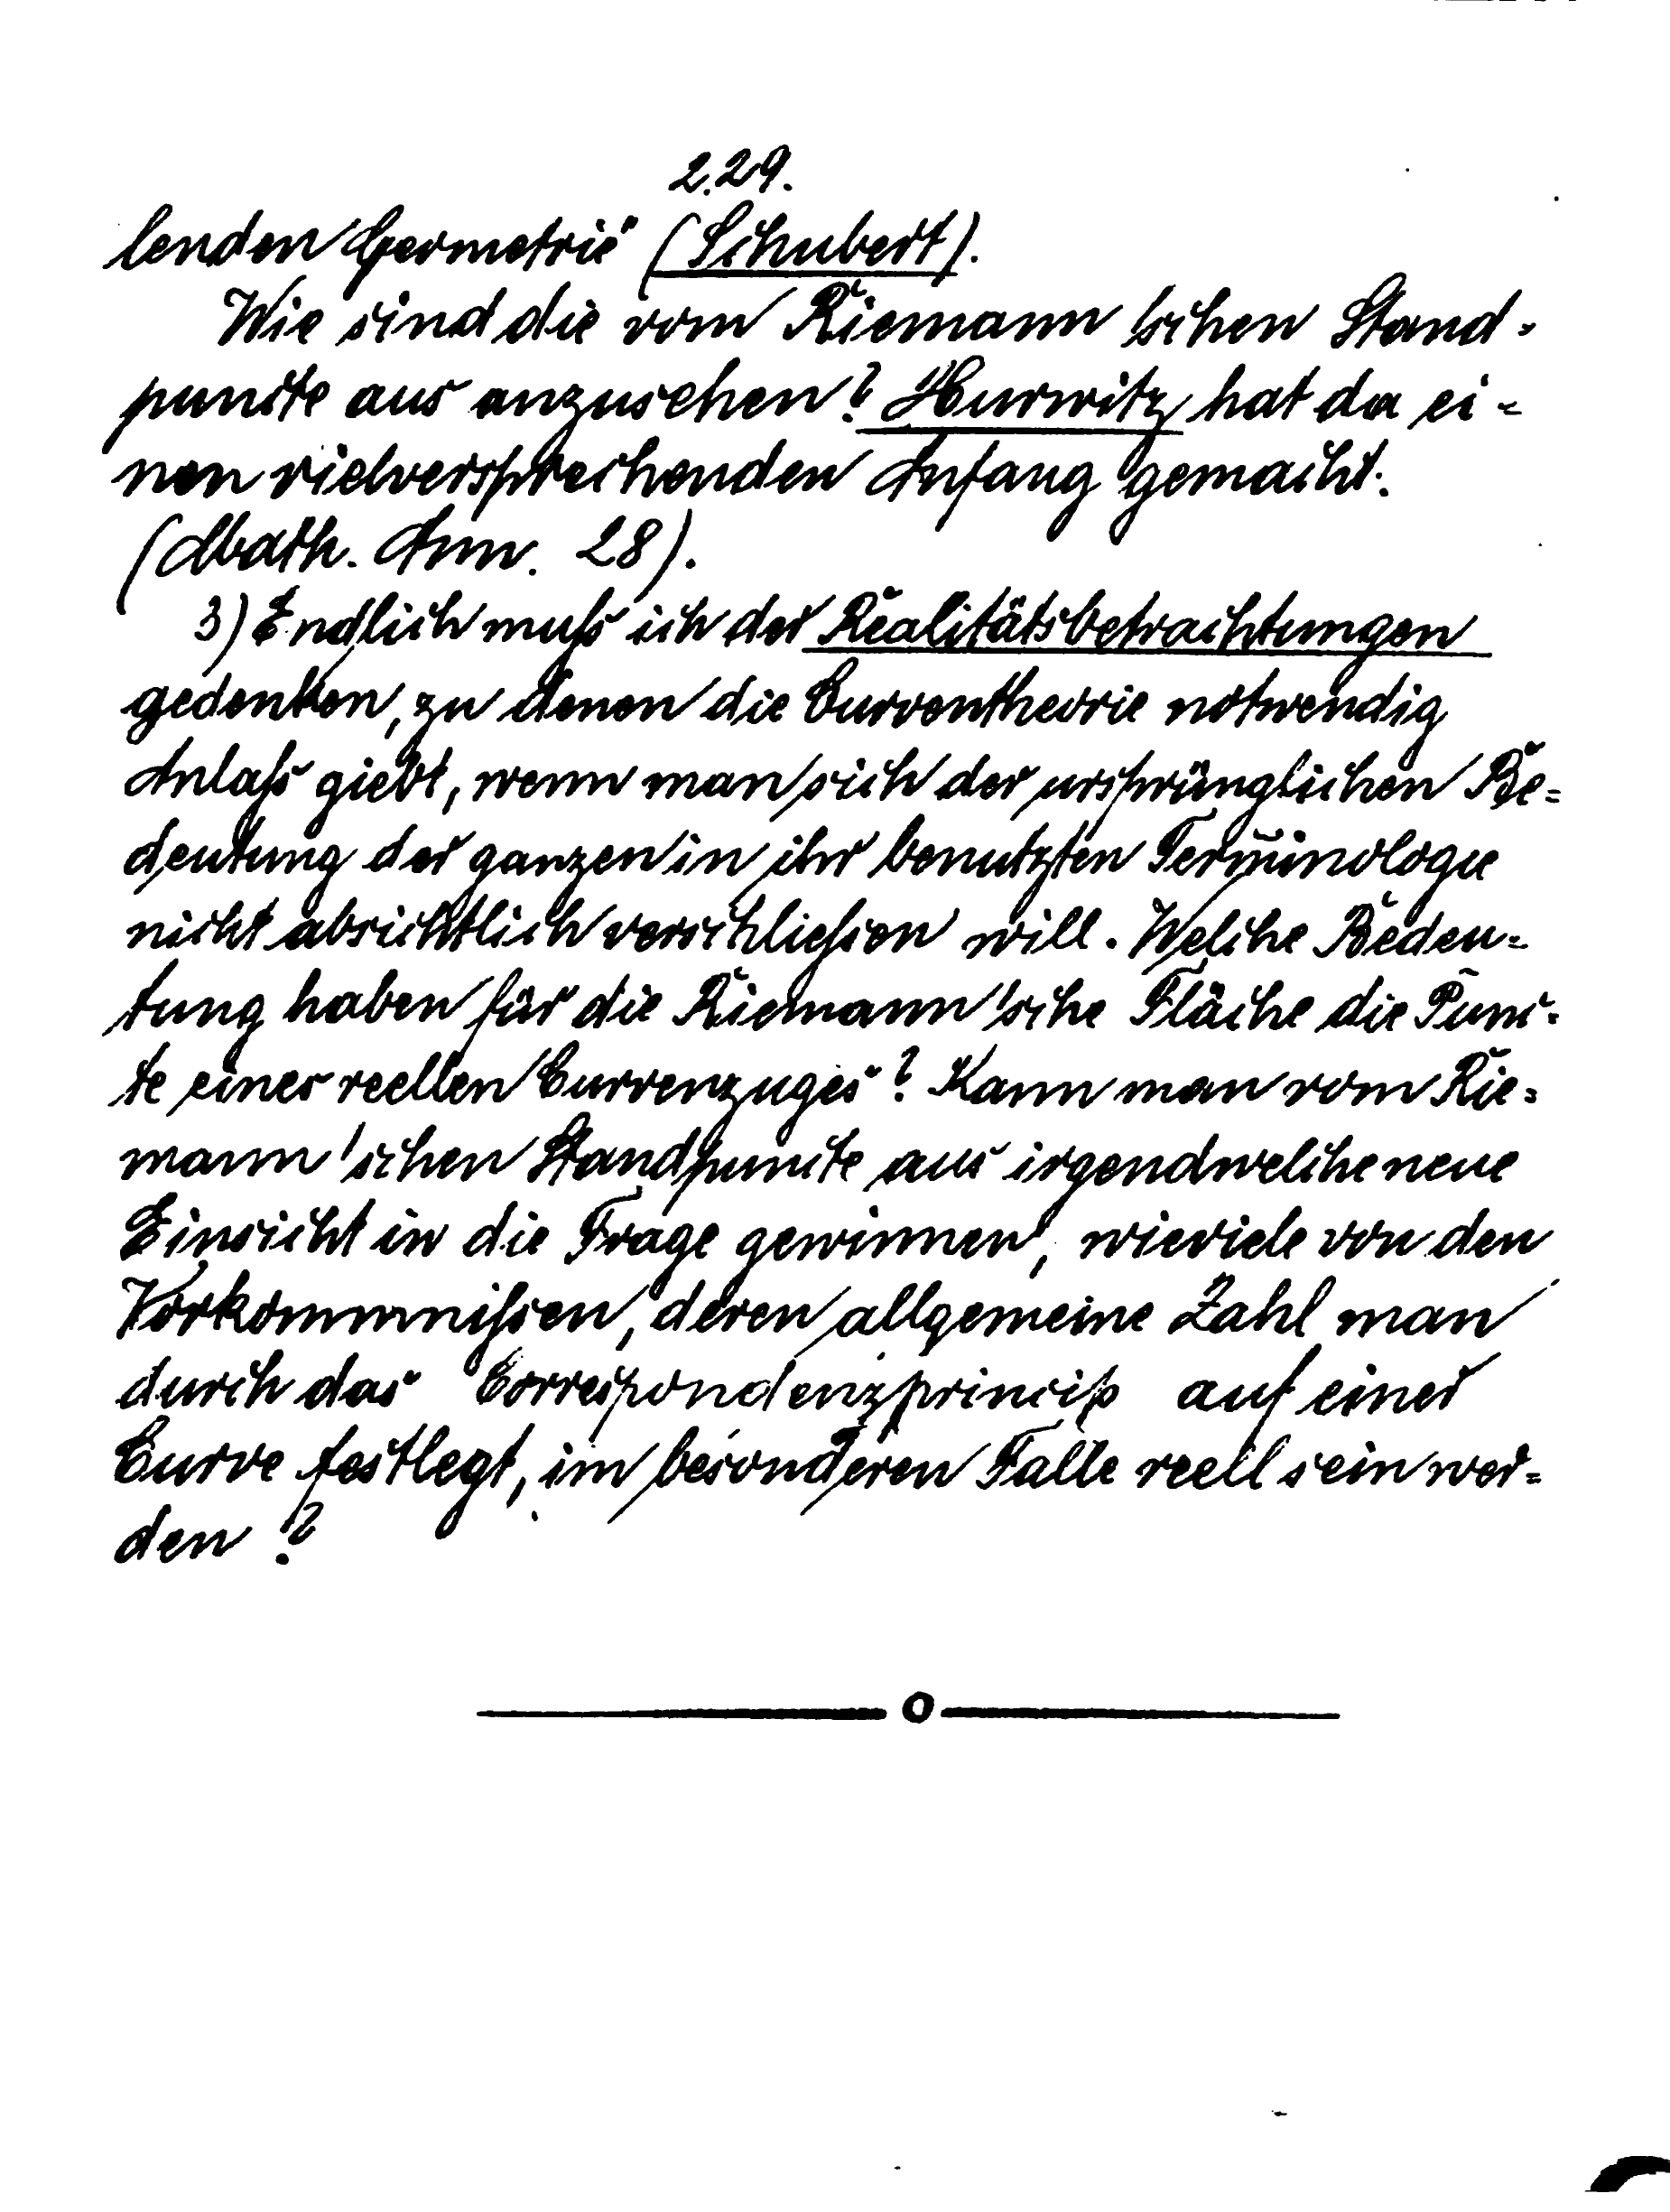 229.
lenden Geometrie" (Schubert).
Wie sind die vom Riemann'schen Stand-
puncte aus anzusehen? Hurwitz hat da ei-
nen vielversprechenden Anfang gemacht.
(Math. Ann. 28).
3) Endlich muß ich der Realitätsbetrachtungen
gedenken, zu denen die Curventheorie notwendig
Anlaß giebt, wenn man sich der ursprünglichen Be-
deutung der ganzen in ihr benutzten Terminologie
nicht absichtlich verschließen will. Welche Bedeu-
tung haben für die Riemann'sche Fläche die Punc-
te eines reellen Curvenzuges? Kann man vom Rie-
mann'schen Standpuncte aus irgendwelche neue
Einsicht in die Frage gewinnen, wieviele von den
Vorkommnißen, deren allgemeine Zahl man
durch das Correspondenzprincip auf einer
Curve festlegt, im besonderen Falle reell sein wer-
den?